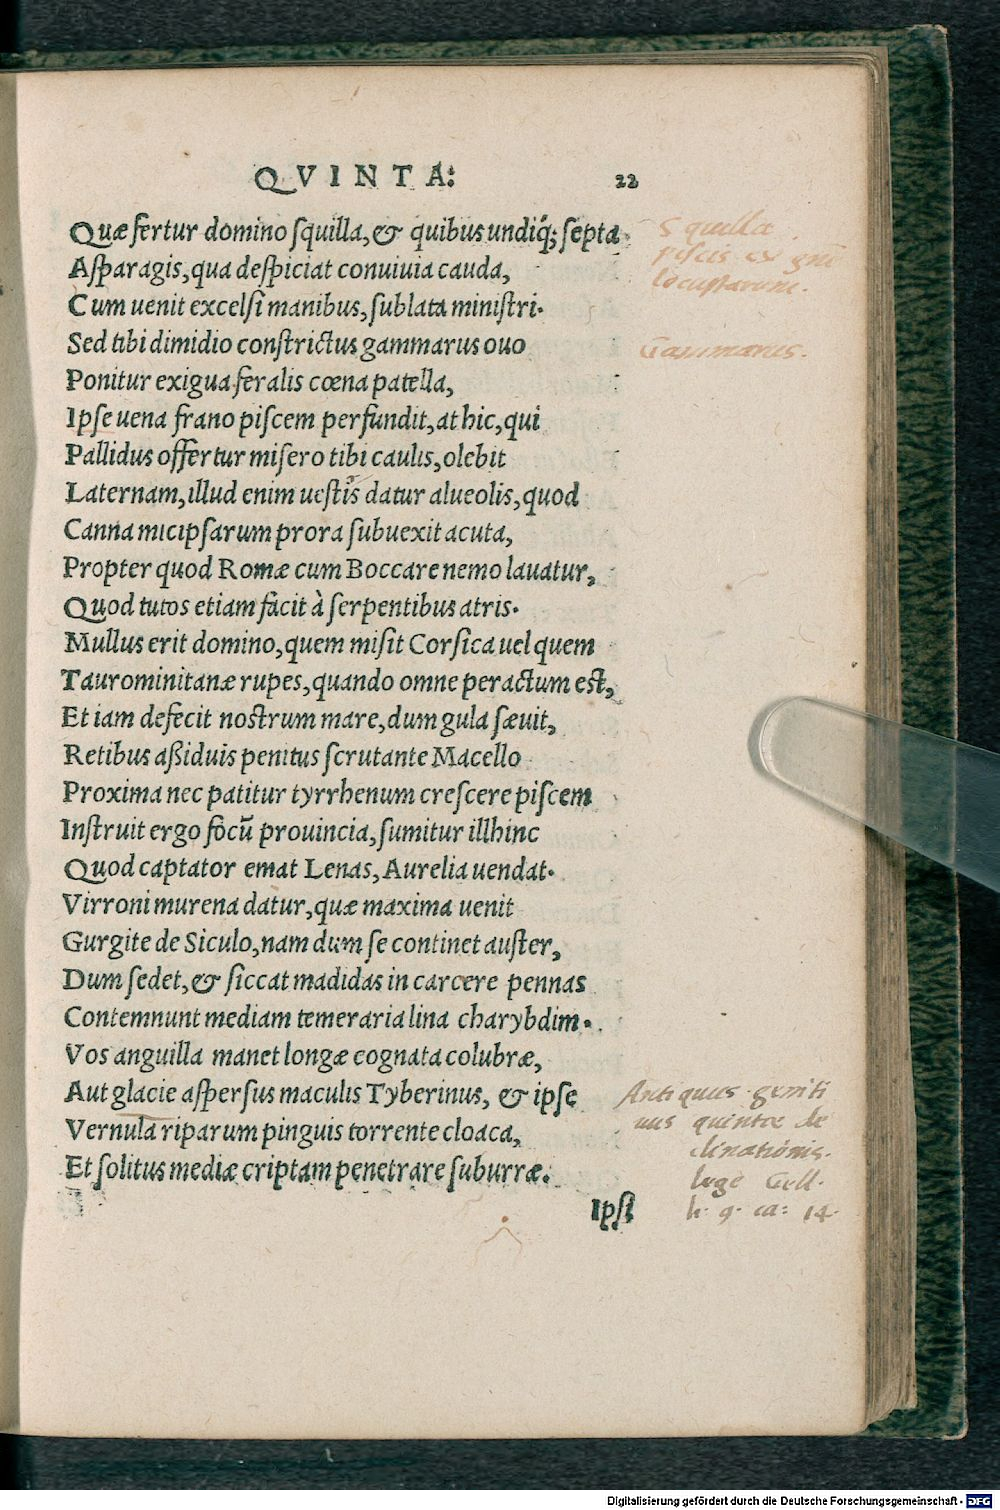 QVINTA: 22
Quæ fertur domino ſquilla, & quibus undiq́; ſepta
Aſparagis, qua deſpiciat conuiuia cauda,
Cum uenit excelſi manibus, ſublata miniſtri.
Sed tibi dimidio conſtrictus gammarus ouo
Ponitur exigua feralis cœna patella,
Ipſe uena frano piſcem perfundit, at hic, qui
Pallidus offertur miſero tibi caulis, olebit
Laternam, illud enim ueſtis datur alueolis, quod
Canna micipſarum prora ſubuexit acuta,
Propter quod Romæ cum Boccare nemo lauatur,
Quod tutos etiam facit à ſerpentibus atris.
Mullus erit domino, quem miſit Corſica uel quem
Taurominitanæ rupes, quando omne peractum est,
Et iam defecit noſtrum mare, dum gula ſæuit,
Retibus aßiduis penitus ſcrutante Macello
Proxima nec patitur tyrrhenum creſcere piſcem
Inſtruit ergo focū prouincia, ſumitur illhinc
Quod captator emat Lenas, Aurelia uendat.
Virroni murena datur, quæ maxima uenit
Gurgite de Siculo, nam dum ſe continet auſter,
Dum ſedet, & ſiccat madidas in carcere pennas
Contemnunt mediam temeraria lina charybdim.
Vos anguilla manet longæ cognata colubræ,
Aut glacie aſperſus maculis Tyberinus, & ipſe
Vernula riparum pinguis torrente cloaca,
Et ſolitus mediæ criptam penetrare ſuburræ.
Ipſi
Squilla
piſcis ex gn̄e
locuſtarum.
Gammarus.
Antiquus geniti
uus quintæ de
clinationis.
lege Gell.
li. 9. ca: 14.
Digitalisierung gefördert durch die Deutsche Forschungsgemeinschaft - DFG